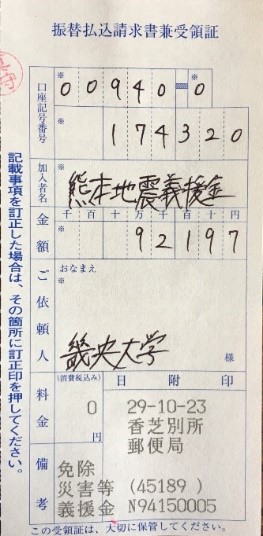 振替払込請求書兼受領証
口座記号番号
※ 00940-0
※ 174320
加入者名
※ 熊本地震義援金
金額
千百十万千百十円
※ 92197
ご依頼人
おなまえ
※
畿央大学 様
料金
(消費税込み)
0 円
日附印
29-10-23
香芝別所
郵便局
備考
免除
災害等 (45189 )
義援金 N94150005
この受領証は、大切に保管してください。
記載事項を訂正した場合は、その箇所に訂正印を押してください。